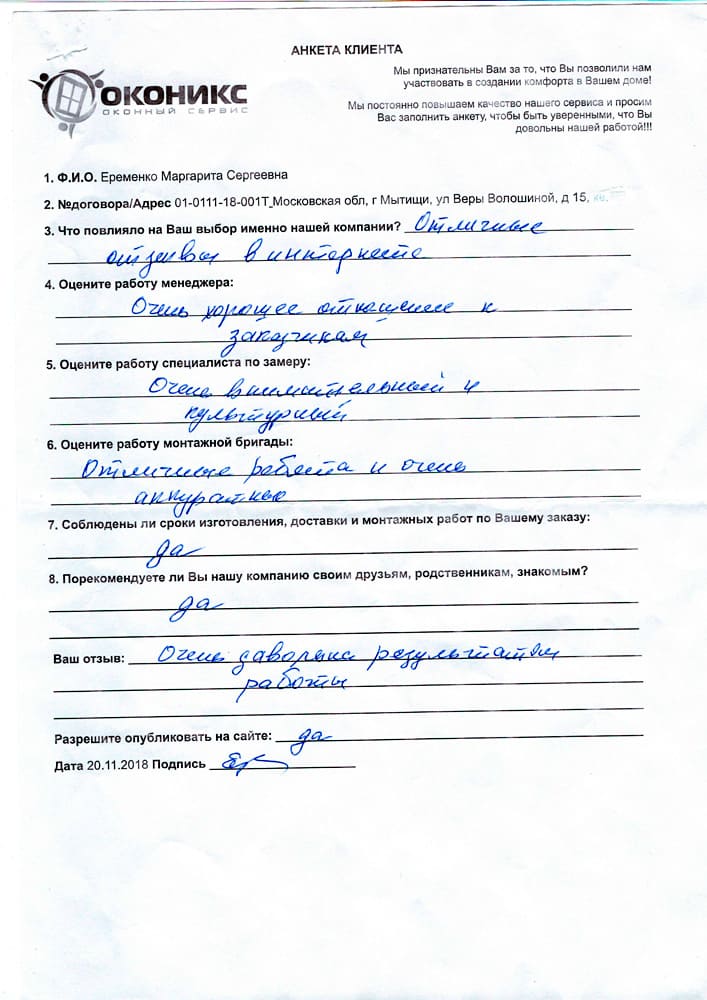 АНКЕТА КЛИЕНТА
ОКОНИКС
ОКОННЫЙ СЕРВИС
Мы признательны Вам за то, что Вы позволили нам
участвовать в создании комфорта в Вашем доме!
Мы постоянно повышаем качество нашего сервиса и просим
Вас заполнить анкету, чтобы быть уверенными, что Вы
довольны нашей работой!!!
1. Ф.И.О. Еременко Маргарита Сергеевна
2. №договора/Адрес 01-0111-18-001Т_Московская обл, г Мытищи, ул Веры Волошиной, д 15, кв.
3. Что повлияло на Ваш выбор именно нашей компании? Отличные
отзывы в интернете
4. Оцените работу менеджера:
Очень хорошее отношение к
заказчикам
5. Оцените работу специалиста по замеру:
Очень внимательный и
культурный
6. Оцените работу монтажной бригады:
Отличные работа и очень
аккуратно
7. Соблюдены ли сроки изготовления, доставки и монтажных работ по Вашему заказу:
да
8. Порекомендуете ли Вы нашу компанию своим друзьям, родственникам, знакомым?
да
Ваш отзыв: Очень даворьна результатом
работы
Разрешите опубликовать на сайте: да
Дата 20.11.2018 Подпись